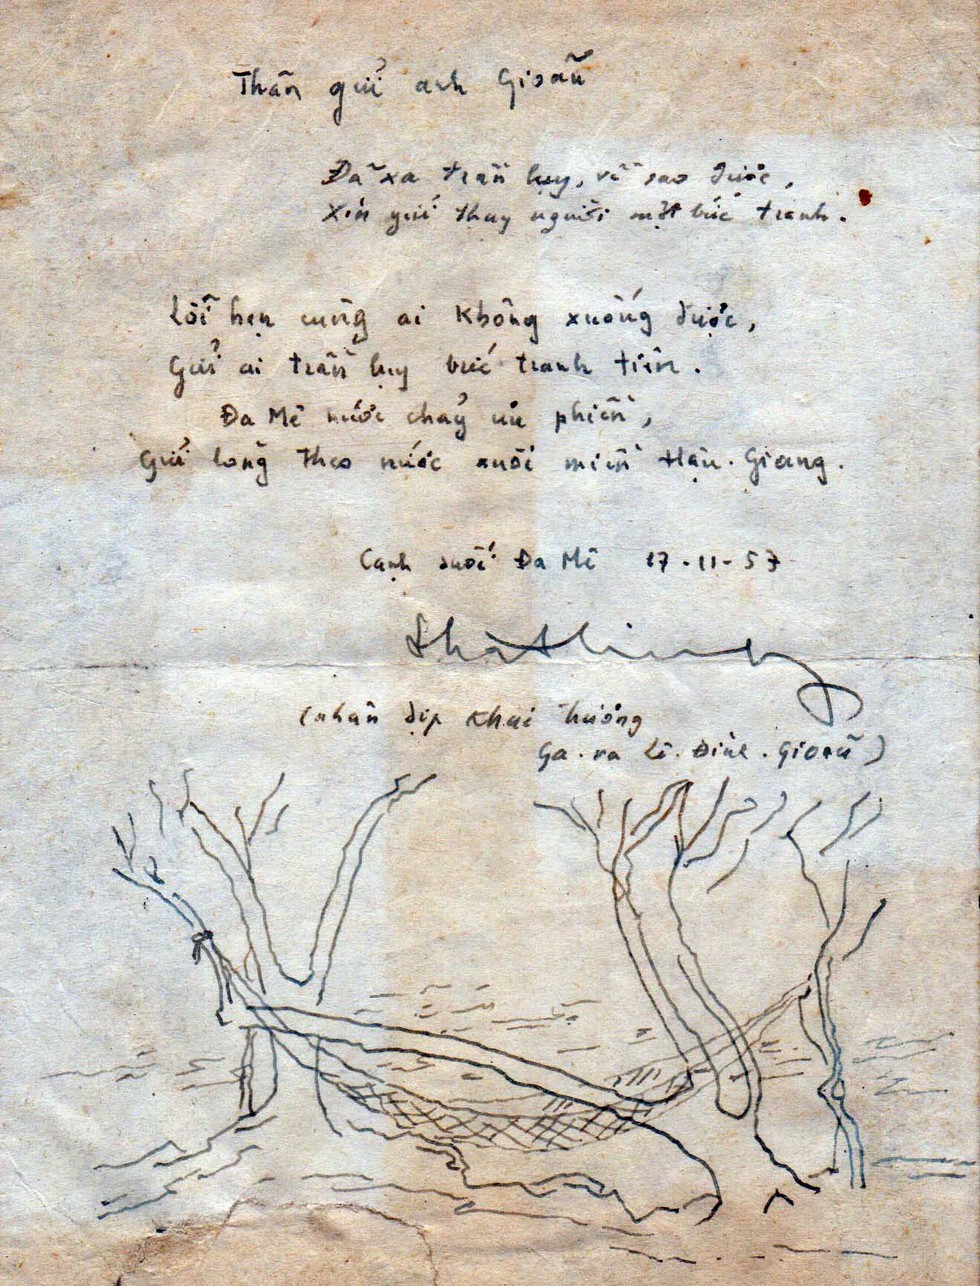 Thân gửi anh Gioãn
Đã xa trần lụy, về sao được,
Xin gửi thay người một bức tranh.
Lỗi hẹn cùng ai không xuống được,
Gửi ai trần lụy bức tranh tiên.
Đa Mê nước chảy ưu phiền,
Gửi lòng theo nước xuôi miền Hậu-Giang.
Cạnh suối Đa Mê 17-11-57
Nhất Linh
(nhân dịp khai trương
Ga-ra Lê-Đình-Gioãn)